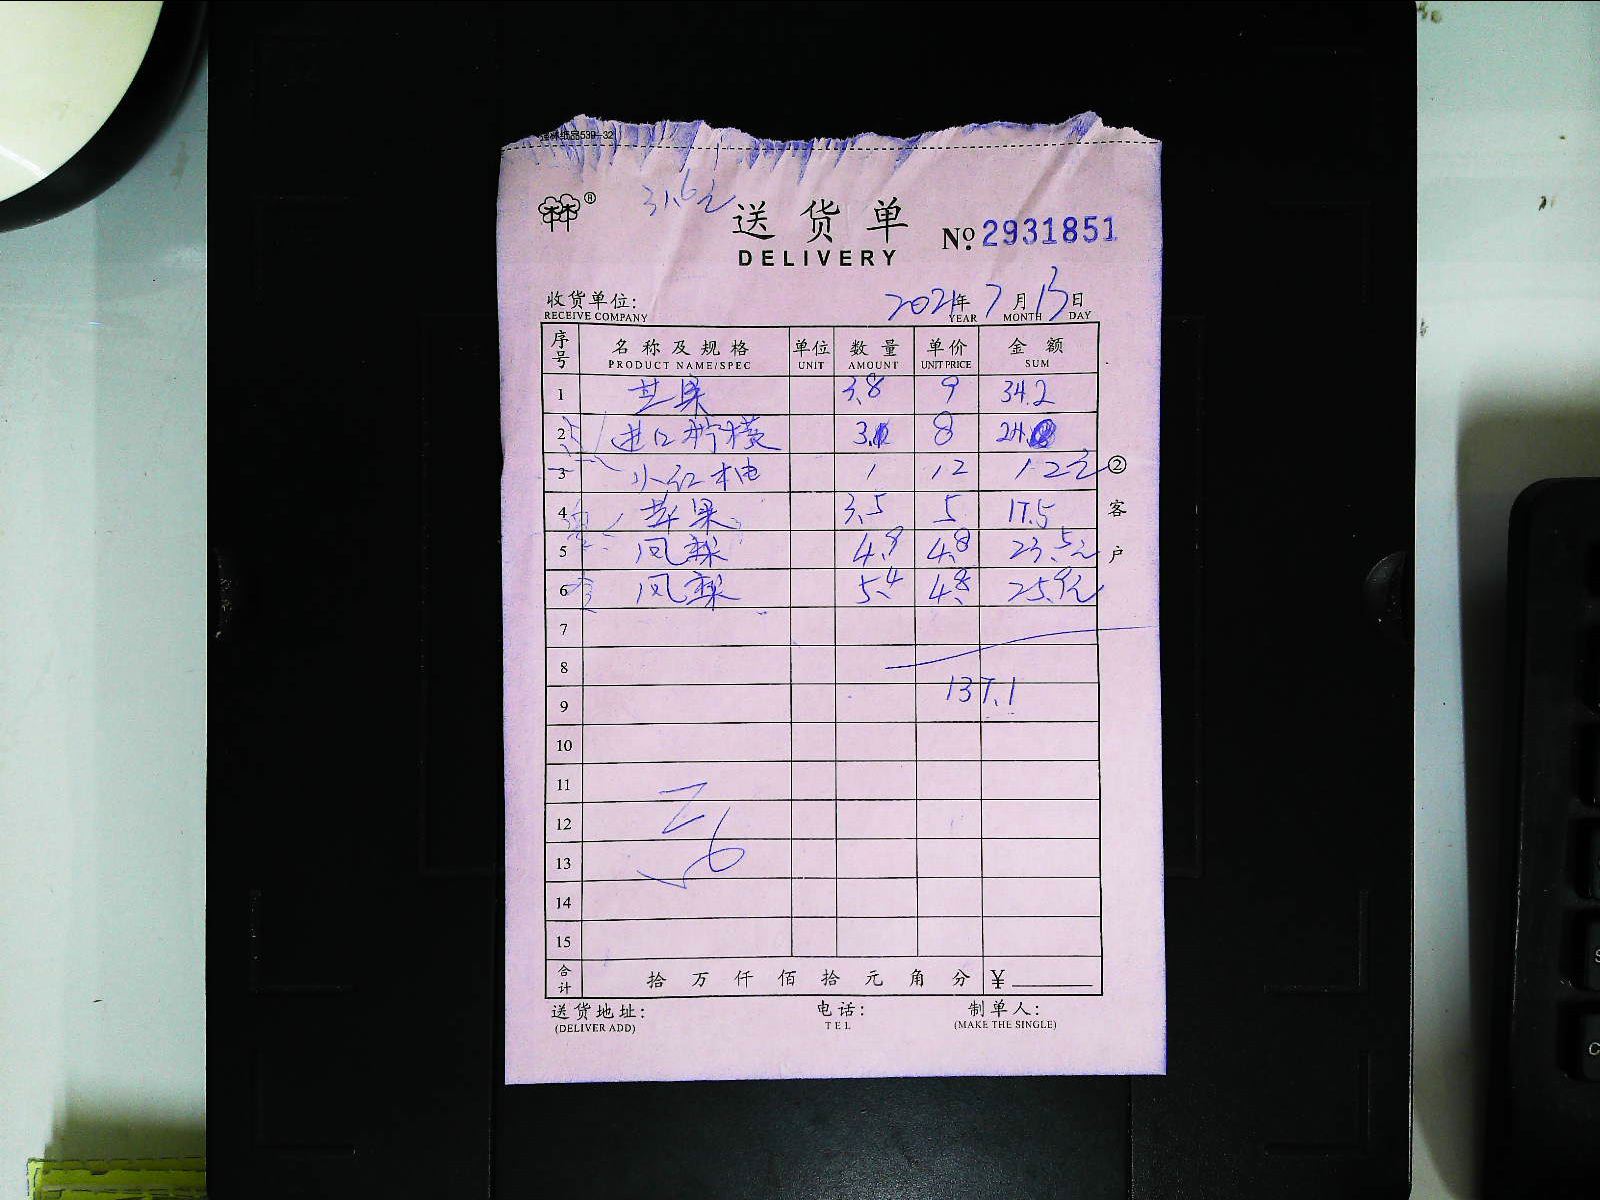 纸品539-32
31.6元
送货单
DELIVERY
No. 2931851
收货单位:
RECEIVE COMPANY
2021年 7月 13日
YEAR MONTH DAY
序号 名称及规格 单位 数量 单价 金额
PRODUCT NAME/SPEC UNIT AMOUNT UNIT PRICE SUM
1 苹果 3.8 9 34.2
2 进口柠檬 3 8 24
3 小红柚 1 12 12元
4 苹果 3.5 5 17.5
5 凤梨 4.9 4.8 23.5元
6 凤梨 5.4 4.8 25.9元
7
8
137.1
9
10
11
12
13
14
15
合计 拾 万 仟 佰 拾 元 角 分 ¥
送货地址: 电话: 制单人:
(DELIVER ADD) TEL (MAKE THE SINGLE)
②
客
户